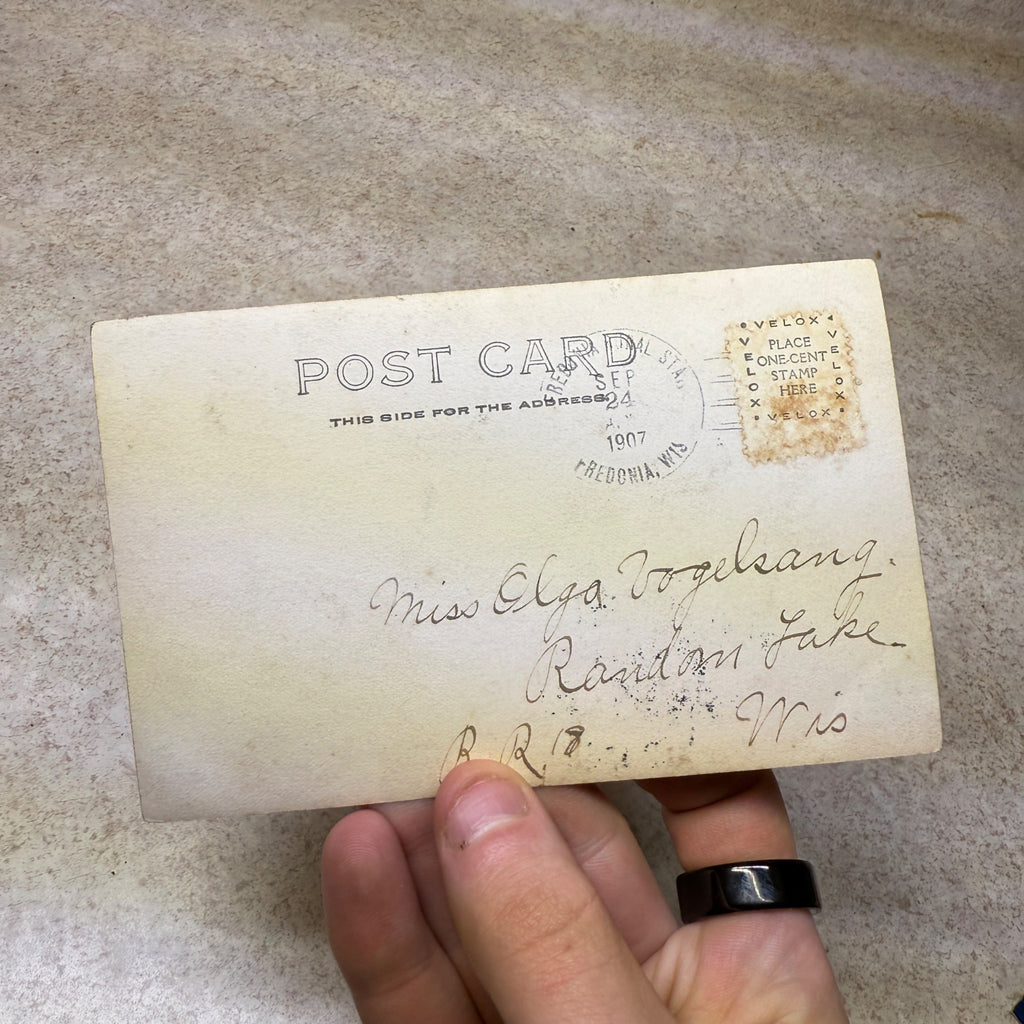 POST CARD
THIS SIDE FOR THE ADDRESS.
SEP
24
1907
FREDONIA, WIS
VELOX
VELOX
VELOX
PLACE
ONE-CENT
STAMP
HERE
VELOX
Miss Olga Vogelsang.
Random Lake.
Wis
R. R. 18.